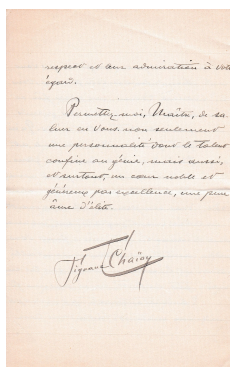 respect et leur admiration à votre
égard.
Permettez-moi, Maître, de sa-
luer en Vous non seulement
une personnalité dont le talent
confine au génie, mais aussi,
et surtout, un cœur noble et
généreux par excellence, une pure
âme d'élite.
Tigrane Tchaïan